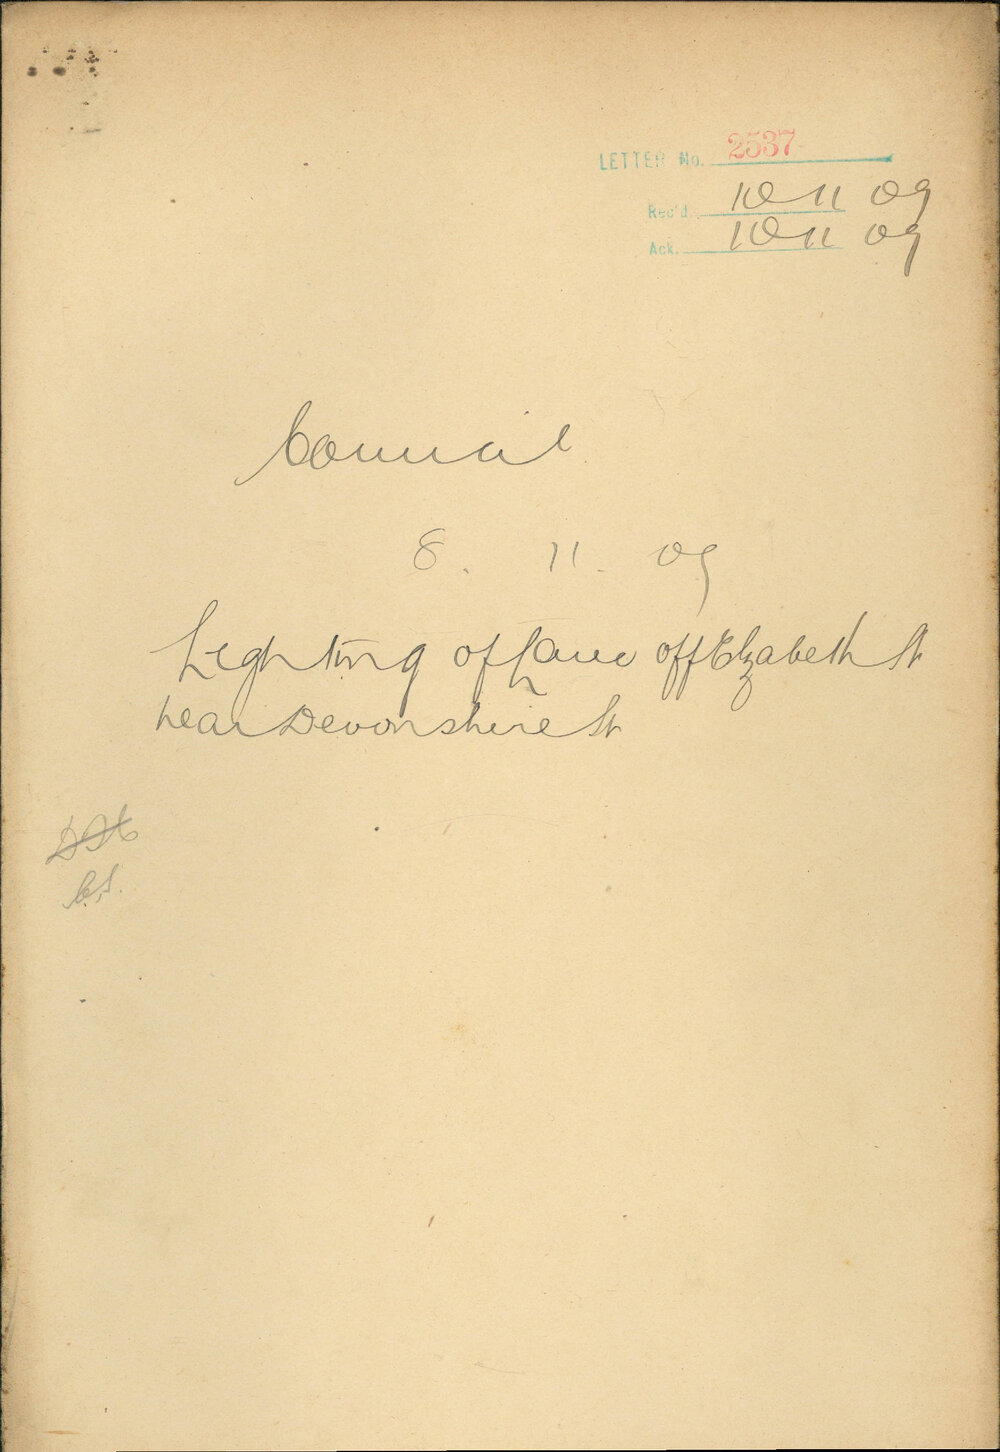 LETTER No. 2537
Rec'd. 10 11 09
Ack. 10 11 09
Council
8. 11. 09
Lighting of Lane off Elizabeth St
near Devonshire St